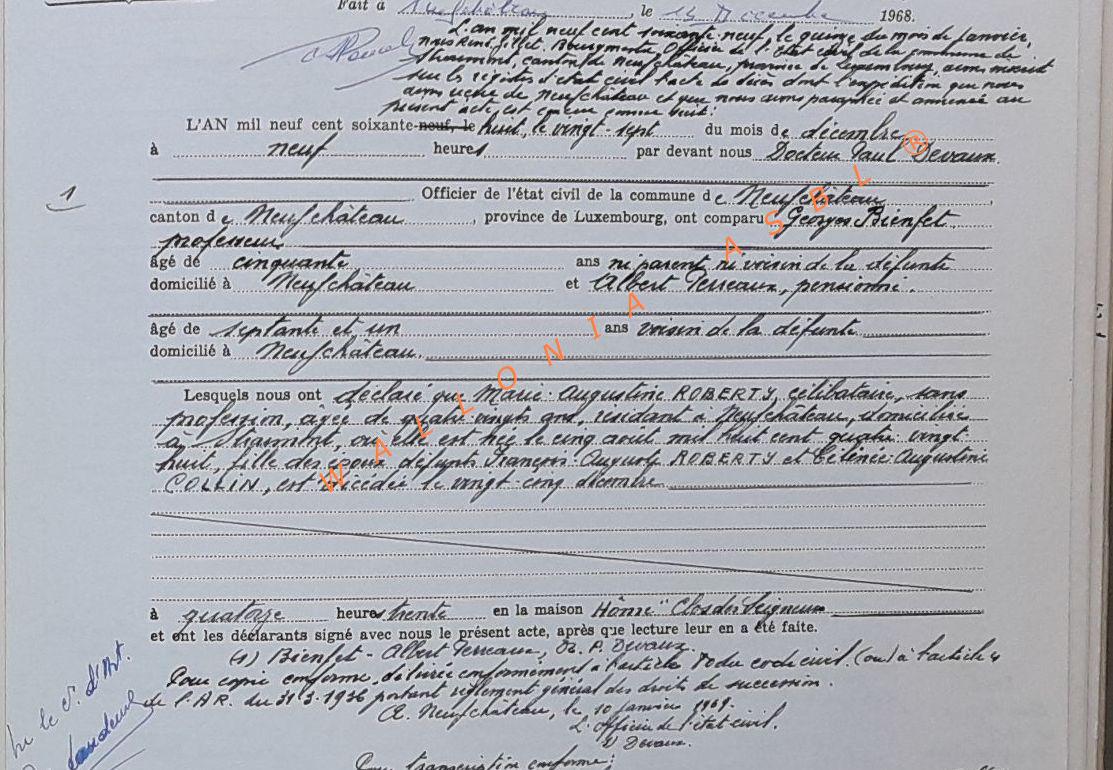 Fait à Neufchâteau, le 14 Décembre 1968.
L'an mil neuf cent soixante neuf, le quinze du mois de janvier,
nous René Gillet, Bourgmestre Officier de l'état civil de la commune de
Straimont, canton de Neufchâteau, province de Luxembourg, avons inscrit
sur les registres d'état civil l'acte de décès dont l'expédition que nous
avons reçue de Neufchâteau et que nous avons paraphée et annexée au
présent acte, est conçue comme suit:
L'AN mil neuf cent soixante-neuf, le huit, le vingt-sept du mois de décembre
à neuf heures par devant nous Docteur Paul Devaux
1
Officier de l'état civil de la commune de Neufchâteau
canton de Neufchâteau, province de Luxembourg, ont comparu Georges Bienfet
professeur
âgé de cinquante ans ni parent ni voisin de la défunte
domicilié à Neufchâteau et Albert Perreaux, pensionné.
âgé de septante et un ans voisin de la défunte
domicilié à Neufchâteau.
Lesquels nous ont déclaré que Marie-Augustine ROBERTY, célibataire, sans
profession, agée de quatre vingts ans, résidant à Neufchâteau, domiciliée
à Straimont, où elle est née le cinq août mil huit cent quatre vingt
huit, fille des époux défunts François-Auguste ROBERTY et Célénie-Augustine
COLLIN, est décédée le vingt cinq décembre
à quatorze heures trente en la maison Home "Clos des Seigneurs
et ont les déclarants signé avec nous le présent acte, après que lecture leur en a été faite.
(s) Bienfet - Albert Perreaux, Dr. P. Devaux.
Pour copie conforme, délivrée conformément à l'article 80 du code civil. (ou) à l'article 4
de l'A.R. du 31-3-1936 portant règlement général des droits de succession.
A Neufchâteau, le 10 janvier 1969.
L'Officier de l'état civil.
P. Devaux.
Pour transcription conforme:
WALLONIA ASBL ®